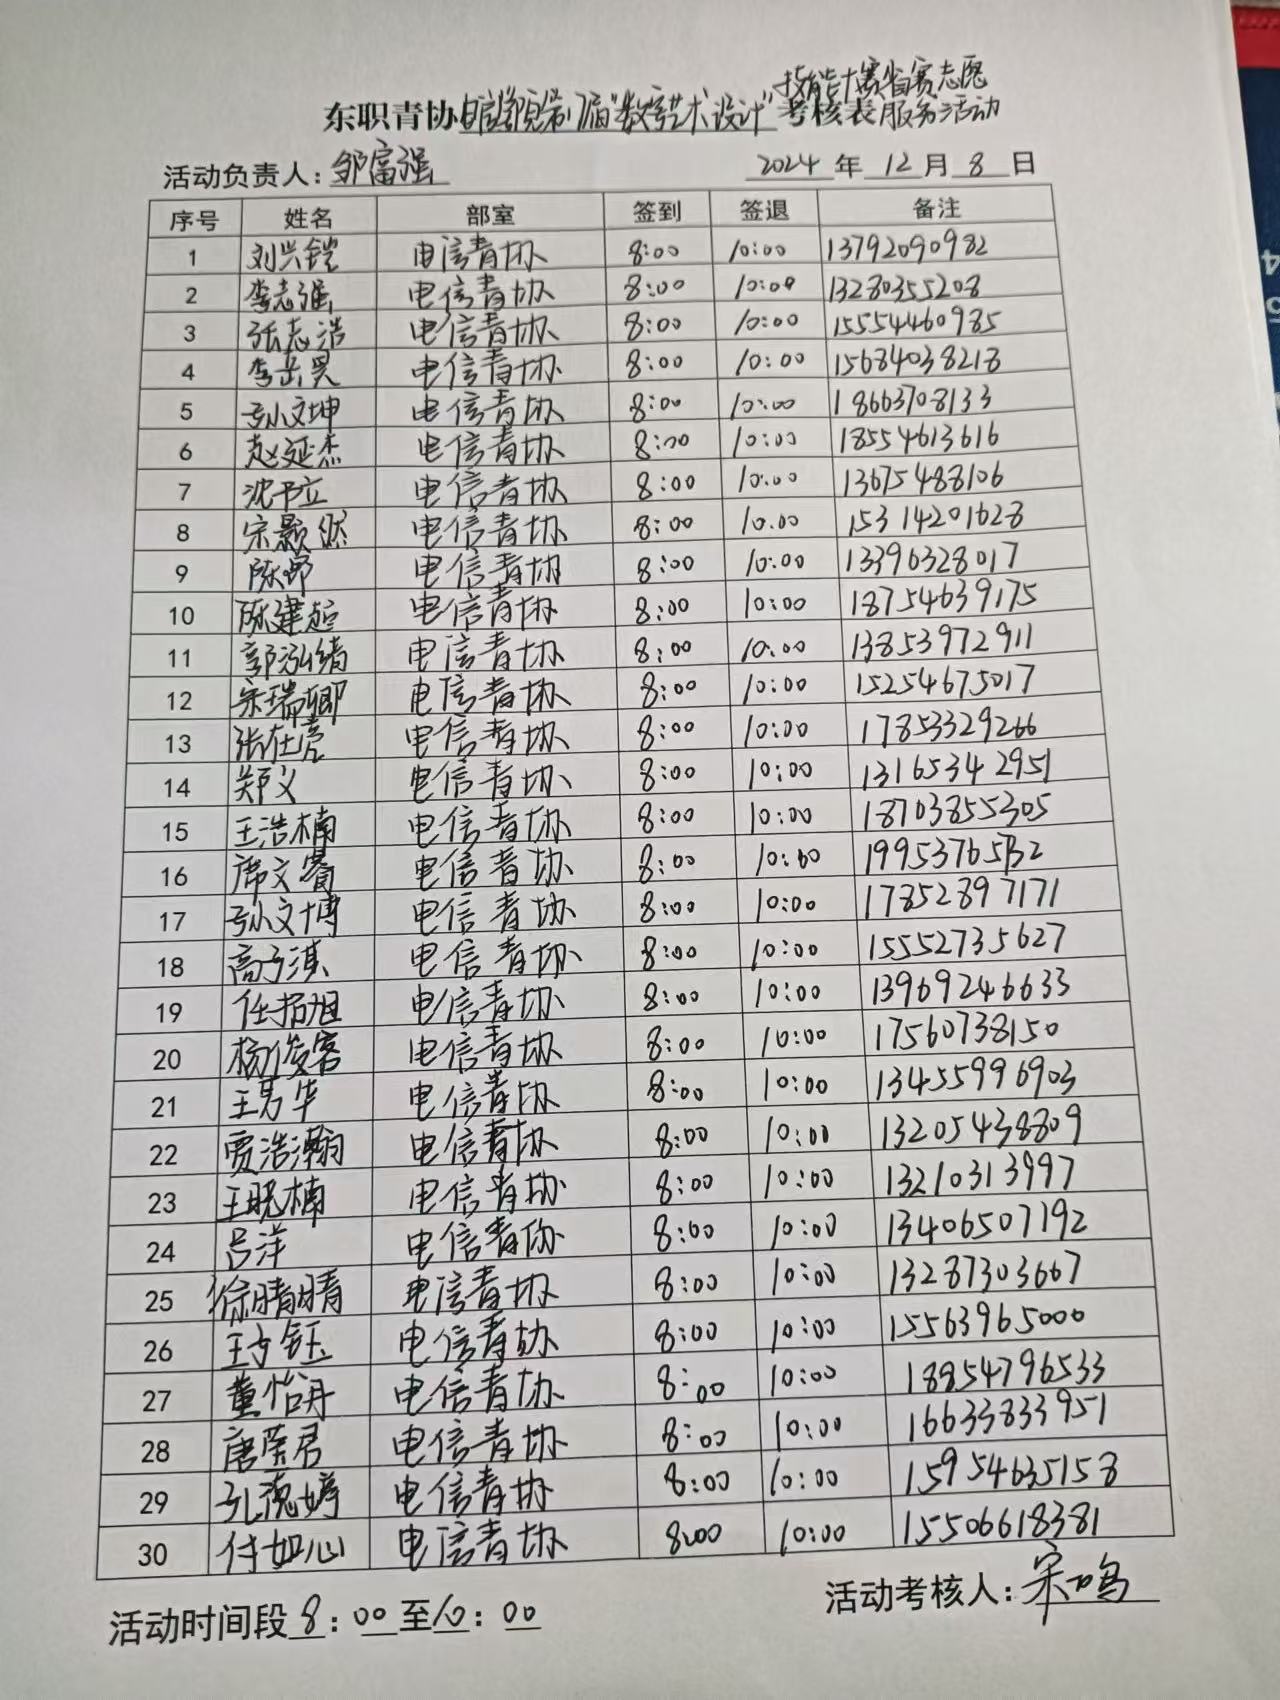 技能大赛省赛志愿
东职青协电信学院第门届"数字艺术设计"考核表服务活动
活动负责人：邹富强 2024 年 12 月 8 日
序号 姓名 部室 签到 签退 备注
1 刘兴铠 电信青协 8:00 10:00 13792090982
2 李志强 电信青协 8:00 10:00 13280355208
3 张志浩 电信青协 8:00 10:00 15554460985
4 李岳昊 电信青协 8:00 10:00 15684038218
5 孙文坤 电信青协 8:00 10:00 18663708133
6 赵延杰 电信青协 8:00 10:00 18554613616
7 沈立 电信青协 8:00 10:00 13675488106
8 宋颢然 电信青协 8:00 10:00 15314201628
9 陈昂 电信青协 8:00 10:00 13396328017
10 陈建超 电信青协 8:00 10:00 18754639175
11 郭泓绪 电信青协 8:00 10:00 13853972911
12 宋瑞卿 电信青协 8:00 10:00 15254675017
13 张在亮 电信青协 8:00 10:00 17853329266
14 郑义 电信青协 8:00 10:00 13165342951
15 王浩楠 电信青协 8:00 10:00 18703855305
16 席文睿 电信青协 8:00 10:00
17 孙文博 电信青协 8:00 10:00 17852897171
18 高子淇 电信青协 8:00 10:00 15552735627
19 任拓旭 电信青协 8:00 10:00 13969246633
20 杨俊客 电信青协 8:00 10:00 17560738150
21 王男华 电信青协 8:00 10:00 13455996903
22 贾浩瀚 电信青协 8:00 10:00 13205438809
23 王晓楠 电信青协 8:00 10:00 13210313997
24 吕洋 电信青协 8:00 10:00 13406507192
25 徐晴晴 电信青协 8:00 10:00 13287303667
26 王文钰 电信青协 8:00 10:00 15563965000
27 董怡丹 电信青协 8:00 10:00 18954796533
28 唐荣君 电信青协 8:00 10:00 16633833951
29 孔德婷 电信青协 8:00 10:00 15954635158
30 付如心 电信青协 8:00 10:00 15506618381
活动时间段 8：00 至 10：00 活动考核人：宋一鸣